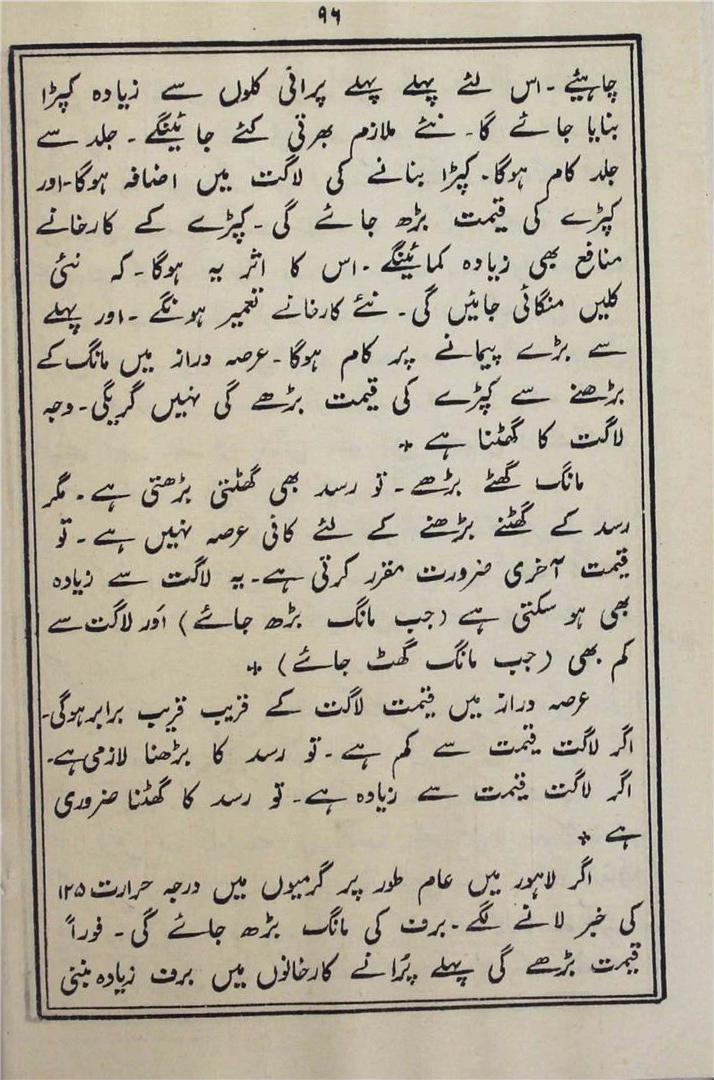 ۹۶
چاہیئے ۔ اس لئے پہلے پہلے پرانی کلوں سے زیادہ کپڑا
بنایا جائے گا۔ نئے ملازم بھرتی کئے جائینگے ۔ جلد سے
جلد کام ہوگا۔ کپڑا بنانے کی لاگت میں اضافہ ہوگا۔اور
کپڑے کی قیمت بڑھ جائے گی ۔کپڑے کے کارخانے
منافع بھی زیادہ کمائینگے ۔اس کا اثر یہ ہوگا۔کہ نئی
کلیں منگائی جائیں گی۔ نئے کارخانے تعمیر ہونگے ۔اور پہلے
سے بڑے پیمانے پر کام ہوگا۔عرصہ دراز میں مانگ کے
بڑھنے سے کپڑے کی قیمت بڑھے گی نہیں گریگی۔ وجہ
لاگت کا گھٹنا ہے *
مانگ گھٹے بڑھے ۔ تو رسد بھی گھٹتی بڑھتی ہے ۔ مگر
رسد کے گھٹنے بڑھنے کے لئے کافی عرصہ نہیں ہے ۔ تو
قیمت آخری ضرورت مقرر کرتی ہے۔ یہ لاگت سے زیادہ
بھی ہو سکتی ہے (جب مانگ بڑھ جائے) اَور لاگت سے
کم بھی (جب مانگ گھٹ جائے) *
عرصہ دراز میں قیمت لاگت کے قریب قریب برابر ہوگی۔
اگر لاگت قیمت سے کم ہے ۔ تو رسد کا بڑھنا لازمی ہے۔
اگر لاگت قیمت سے زیادہ ہے۔ تو رسد کا گھٹنا ضروری
ہے *
اگر لاہور میں عام طور پر گرمیوں میں درجہ حرارت ۱۲۵
کی خبر لانے لگے ۔برف کی مانگ بڑھ جائے گی ۔ فوراً
قیمت بڑھے گی پہلے پُرانے کارخانوں میں برف زیادہ بنتی